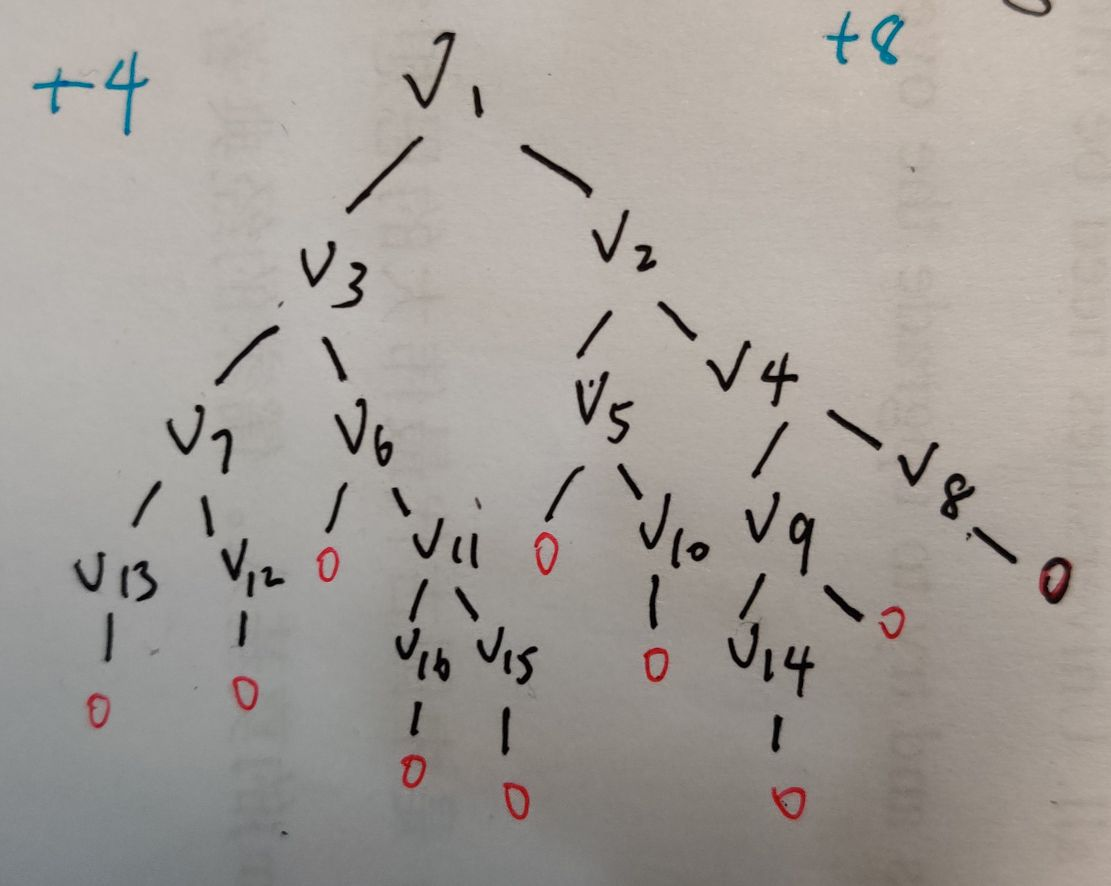 +4 +8
V1
V3 V2
V7 V6 V5 V4
V13 V12 0 V11 0 V10 V9 V8
0 0 V16 V15 0 V14 0 0
0 0 0